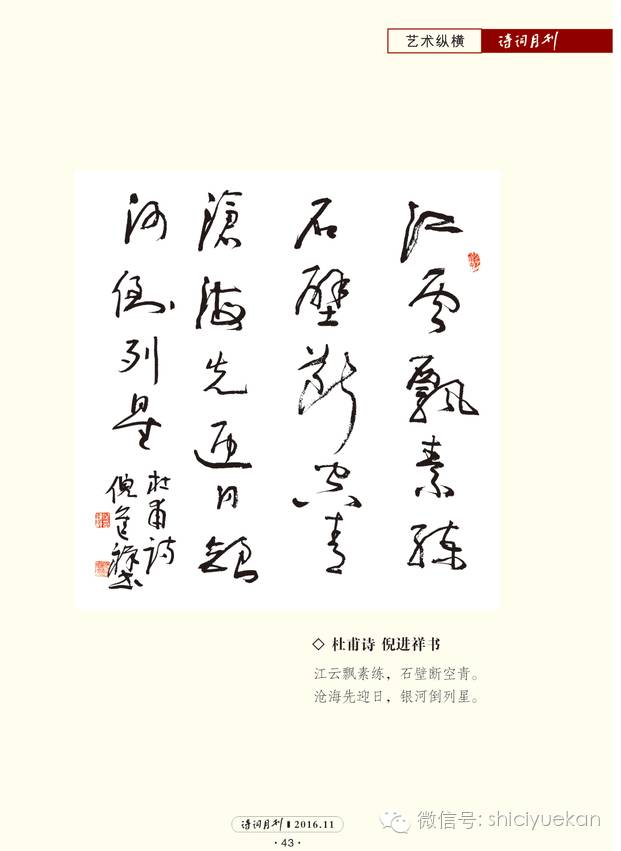 艺术纵横 诗词月刊
江雲飘素練
石壁斷空青
滄海先迎日銀
河倒列星
杜甫詩
倪進祥书
◇ 杜甫诗 倪进祥书
江云飘素练，石壁断空青。
沧海先迎日，银河倒列星。
诗词月刊 2016.11
·43·
微信号: shiciyuekan